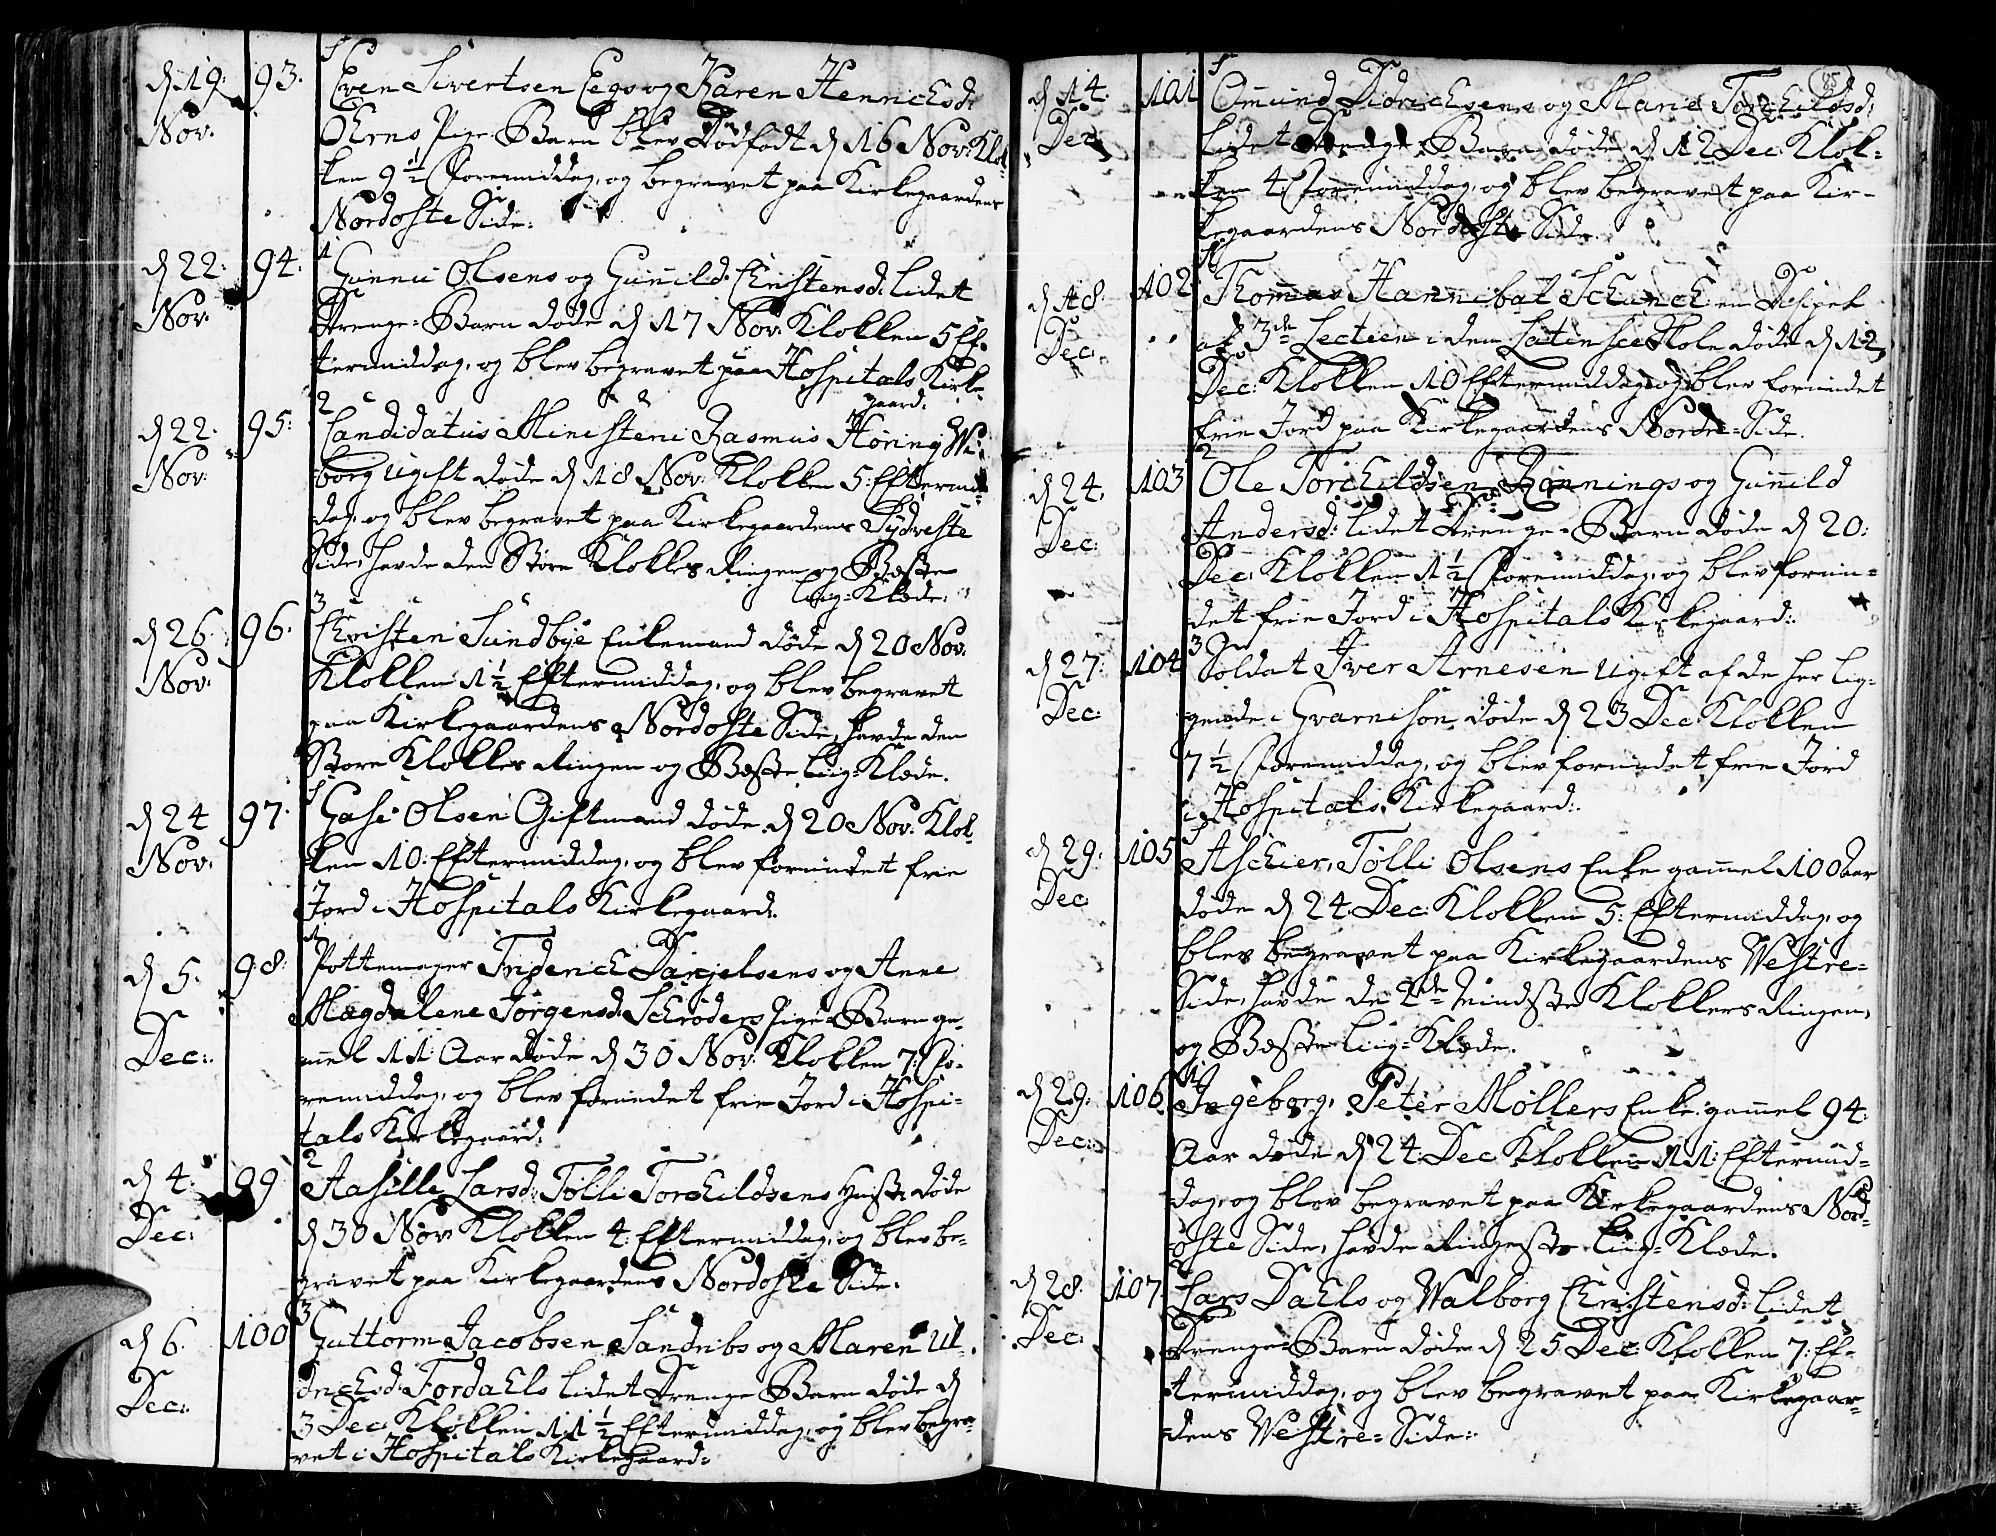 d 19. 93. Even Sivertsen Eegs og Karen Henrichsd:
Nov: Øerns Pige-Barn blev dødfødt d 16 Nov: Klok-
ken 9 1/2 Formiddag, og begravet paa Kirkegaardens
Nordoste Side:
d 22. 94. 1
Gunni Olsens og Guñild Christensd: lidet
Nov: Drenge-Barn døde d 17 Nov: Klokken 5 Ef-
termiddag, og blev begravet paa Hospitals Kirke-
gaard:
d 22. 95. 2
Candidatus Ministeri Rasmus Høring Wi-
Nov: borg ugift døde d 18 Nov: Klokken 5: Eftermid-
dag, og blev begravet paa Kirkegaardens Sydveste
Side, havde den Store Klokkes Ringen og Bæste
Liig-Klæde:
d 26. 96. 3
Christen Sundbye Enkemand døde d 20 Nov.
Nov: Klokken 1 1/2 Eftermiddag, og blev begravet
paa Kirkegaardens Nordoste Side, havde den
Store Klokkes Ringen og Bæste Liig-Klæde.
d 24 97. Olsen Giftmand døde d 20 Nov: Klok-
Nov: ken 10: Eftermiddag, og blev forundet frie
Jord i Hospitals Kirkegaard:
d 5. 98. 1
Pottemager Friderich Danjelsens og Anne
Dec: Magdalene Jørgensd: Schrøders Pige-Barn ga-
mel 11 Aar døde d 30 Nov: Klokken 7: For-
remiddag, og blev forundet frie Jord i Hospi-
tals Kirkegaard:
d 4. 99 2
Aasille Larsd: Tølli Torchildsens Hustr: døde
Dec: d 30 Nov Klokken 4: Eftermiddag, og blev be-
gravet paa Kirkegaardens Nordoste Side:
d 6. 100 3
Guttorm Jacobsen Sandvibs og Maren Ul-
Dec: drichsd: Fordahls lidet Drenge Barn døde d
3 Dec: Klokken 11 1/2 Eftermiddag, og blev begra-
vet i Hospitals Kirkegaard:
d 14. 101 Omund Didrichsens og Marie Torchildsd:
Dec: lidet Drenge-Barn døde d 12 Dec: Klok-
ken 4: Formiddag, og blev begravet paa Kir-
kegaardens Nordoste Side.
d 18. 102 Thommas Hannibal Schunck en Dissipel
Dec: af 3de Lectien i den Latinske Skole døde d 12
Dec: Klokken 10 Eftermiddag, og blev forundet
frie Jord paa Kirkegaardens Nordre-Side.
d 24. 103 2
Ole Torchildsen Rønnings og Guñild
Dec: Andersd: lidet Drenge-Barn døde d 20:
Dec: Klokken 1 1/2 Formiddag, og blev forun-
det frie Jord i Hospitals Kirkegaard:
d 27: 104 3
Soldat Iver Arnesen ugift af de her lig-
Dec: gende Gvarnison, døde d 23 Dec: Klokken
7 1/2 Formiddag, og blev forundet frie Jord
i Hospitals Kirkegaard:
d 29. 105 Aschier, Tølli Olsens Enke gammel 100 Aar
Dec døde d 24 Dec: Klokken 5: Eftermiddag, og
blev begravet paa Kirkegaardens Westre-
Side, havde de 2de Mindste Klokkers Ringen,
og Bæste Liig-Klæde.
d 29. 106 1
Ingeborg, Peter Møllers Enke gammel 94:
Dec: Aar døde d 24 Dec Klokken 11: Eftermid-
dag, og blev begravet paa Kirkegaardens Nord-
oste Side, havde Ringeste Liig-Klæde.
d 28. 107. 2
Lars Dahls og Walborg Christensd: lidet
Dec: Drenge-Barn døde d 25 Dec: Klokken 7: Ef-
termiddag, og blev begravet paa Kirkegaar-
dens Westre-Side: